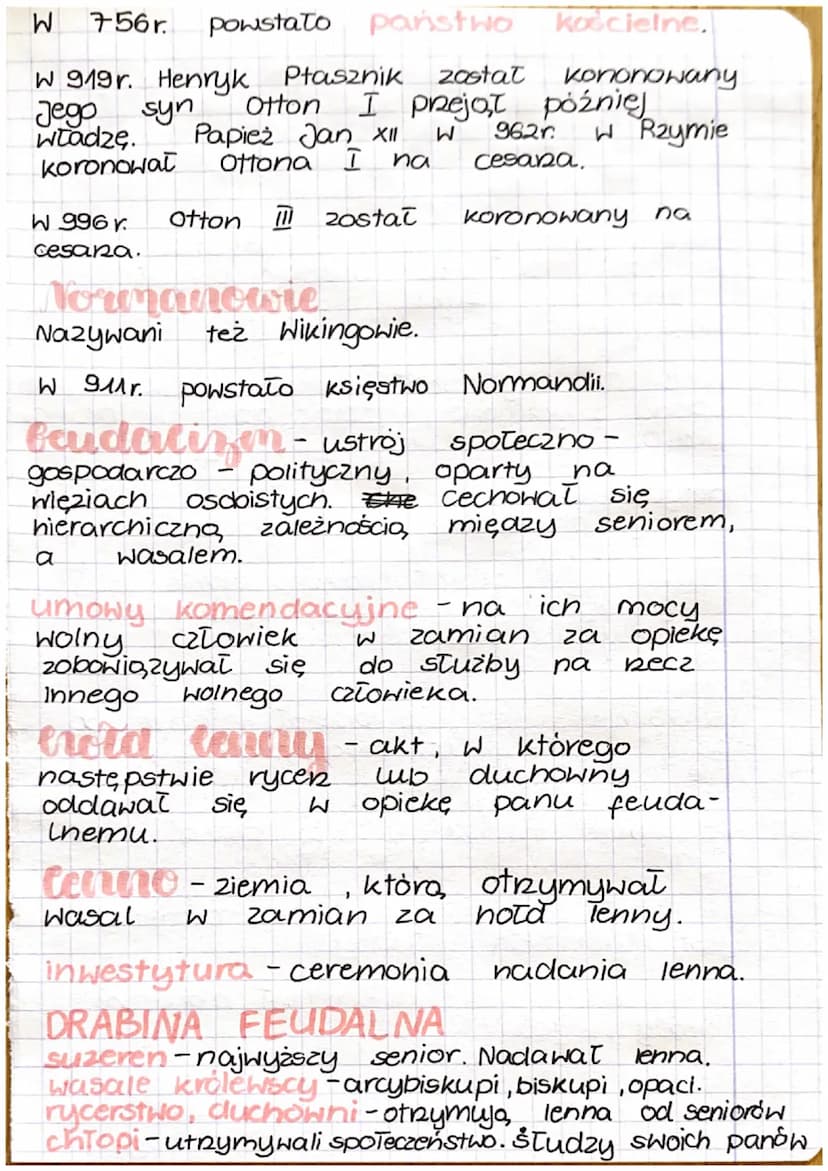 W 756r. powstało państwo kościelne.
W 919r. Henryk Ptasznik został kononowany
Jego syn Otton I przejął później
władzę. Papież Jan XII w 962r. w Rzymie
koronował Ottona I na cesarza.
W 996 r. Otton III został koronowany na
cesarza.
Normanowie
Nazywani też Wikingowie.
W 911r. powstało księstwo Normandii.
feudalizm - ustrój społeczno -
gospodarczo - polityczny, oparty na
więziach osobistych. Cechował się
hierarchiczną zależnością między seniorem,
a wasalem.
umowy komendacyjne - na ich mocy
wolny człowiek w zamian za opiekę
zobowiązywał się do służby na rzecz
innego wolnego człowieka.
hołd lenny - akt, w którego
następstwie rycerz lub duchowny
oddawał się w opiekę panu feuda-
lnemu.
Lenno - ziemia, którą otrzymywał
wasal w zamian za hołd lenny.
inwestytura - ceremonia nadania lenna.
DRABINA FEUDALNA
suzeren - najwyższy senior. Nadawał lenna.
wasale królewscy - arcybiskupi, biskupi, opaci.
rycerstwo, duchowni - otrzymują lenna od seniorów
chłopi - utrzymywali społeczeństwo. Słudzy swoich panów